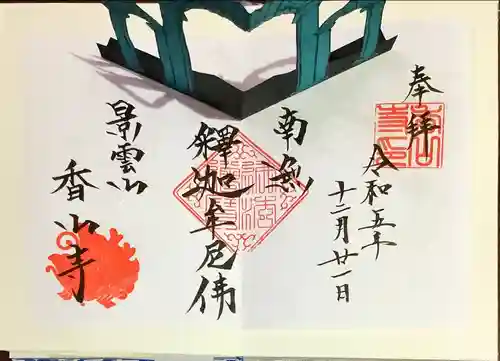 奉拝
令和五年
十二月廿一日
南無
釋迦牟尼佛
景雲山
香山寺